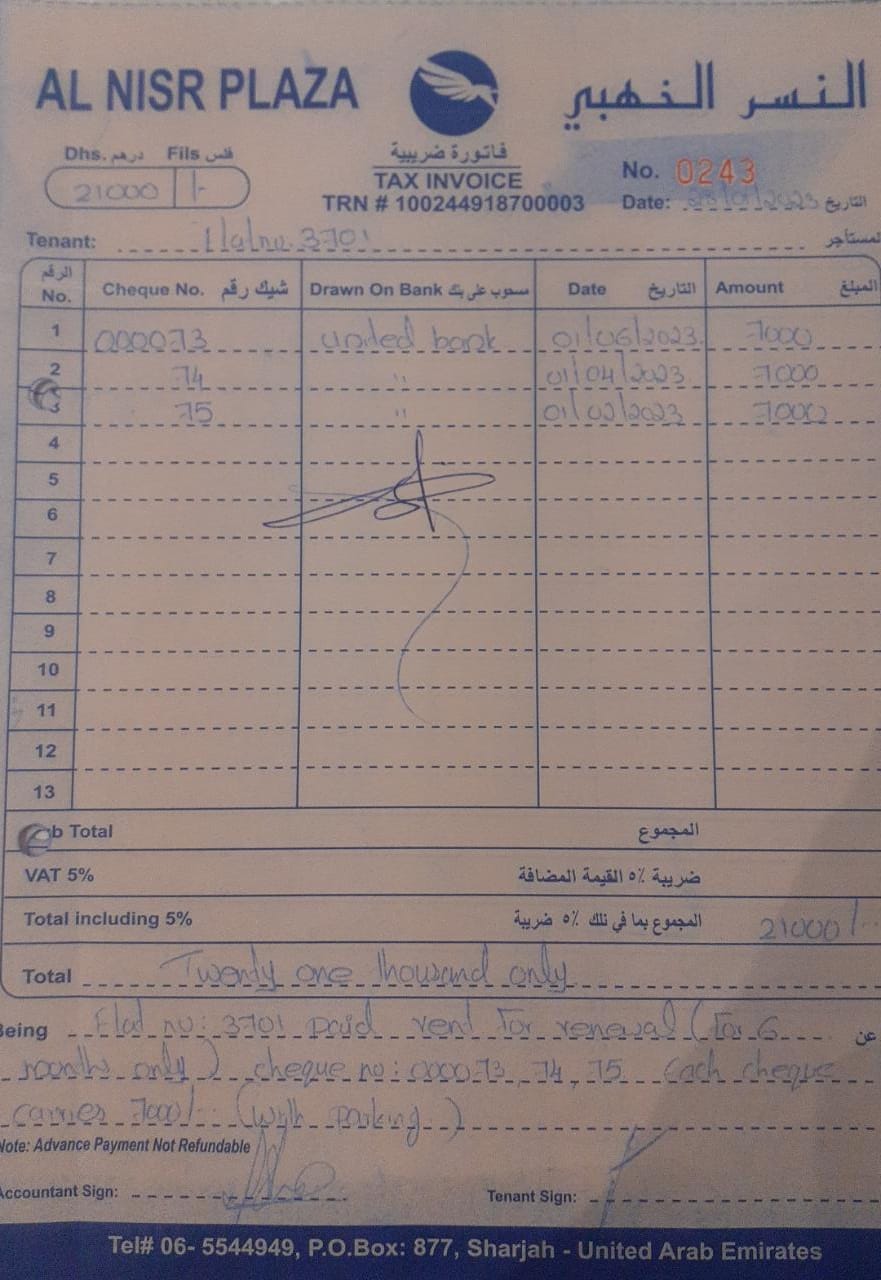 AL NISR PLAZA
النسر الذهبي
Dhs. درهم Fils فلس
21000 /-
فاتورة ضريبية
TAX INVOICE
TRN # 100244918700003
No. 0243
Date: /2023 التاريخ
Tenant: Flat no. 3701 المستأجر
الرقم No. Cheque No. شيك رقم Drawn On Bank مسحوب على بنك Date التاريخ Amount المبلغ
1 000073 united bank 01/06/2023 7000
2 74 " 01/04/2023 7000
3 75 " 01/02/2023 7000
4
5
6
7
8
9
10
11
12
13
Sub Total المجموع
VAT 5% ضريبة ٥٪ القيمة المضافة
Total including 5% المجموع بما في ذلك ٥٪ ضريبة 21000/..
Total Twenty one thousand only
Being Flat no: 3701 paid rent for renewal (for 6 عن
months only) cheque no: 000073, 74, 75. Each cheque
carries 7000/.. (with parking)
Note: Advance Payment Not Refundable
Accountant Sign: Tenant Sign:
Tel# 06- 5544949, P.O.Box: 877, Sharjah - United Arab Emirates